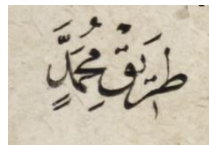 طَرِيقِ مُحَمَّدٍ